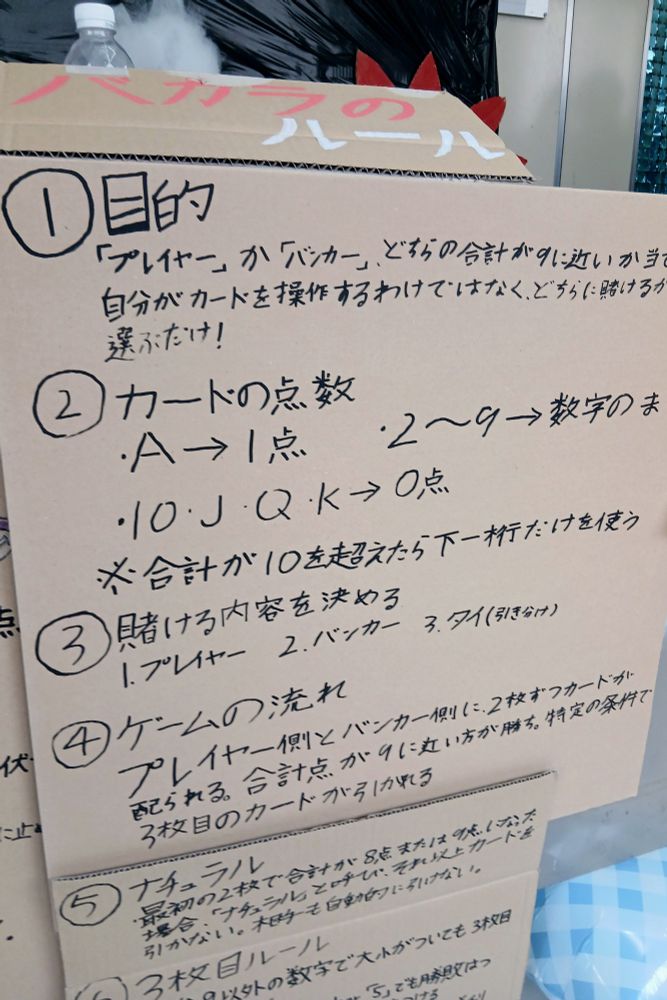 バカラの
ルール
① 目的
「プレイヤー」か「バンカー」、どちらの合計が9に近いか当て
自分がカードを操作するわけではなく、どちらに賭けるか
選ぶだけ!
② カードの点数
・A→1点 ・2〜9→数字のま
・10・J・Q・K→0点
※合計が10を超えたら下一桁だけを使う
③ 賭ける内容を決める
1.プレイヤー 2.バンカー 3.タイ(引き分け)
④ ゲームの流れ
プレイヤー側とバンカー側に、2枚ずつカードが
配られる。合計点が9に近い方が勝ち。特定の条件で
3枚目のカードが引かれる
⑤ ナチュラル
・最初の2枚で合計が8点または9点になった
場合、「ナチュラル」と呼び、それ以上カードを
引かない。相手も自動的に引けない。
⑥ 3枚目ルール
以外の数字で大小がついても3枚目
「5」でも勝敗はつ
点
伏
に止め